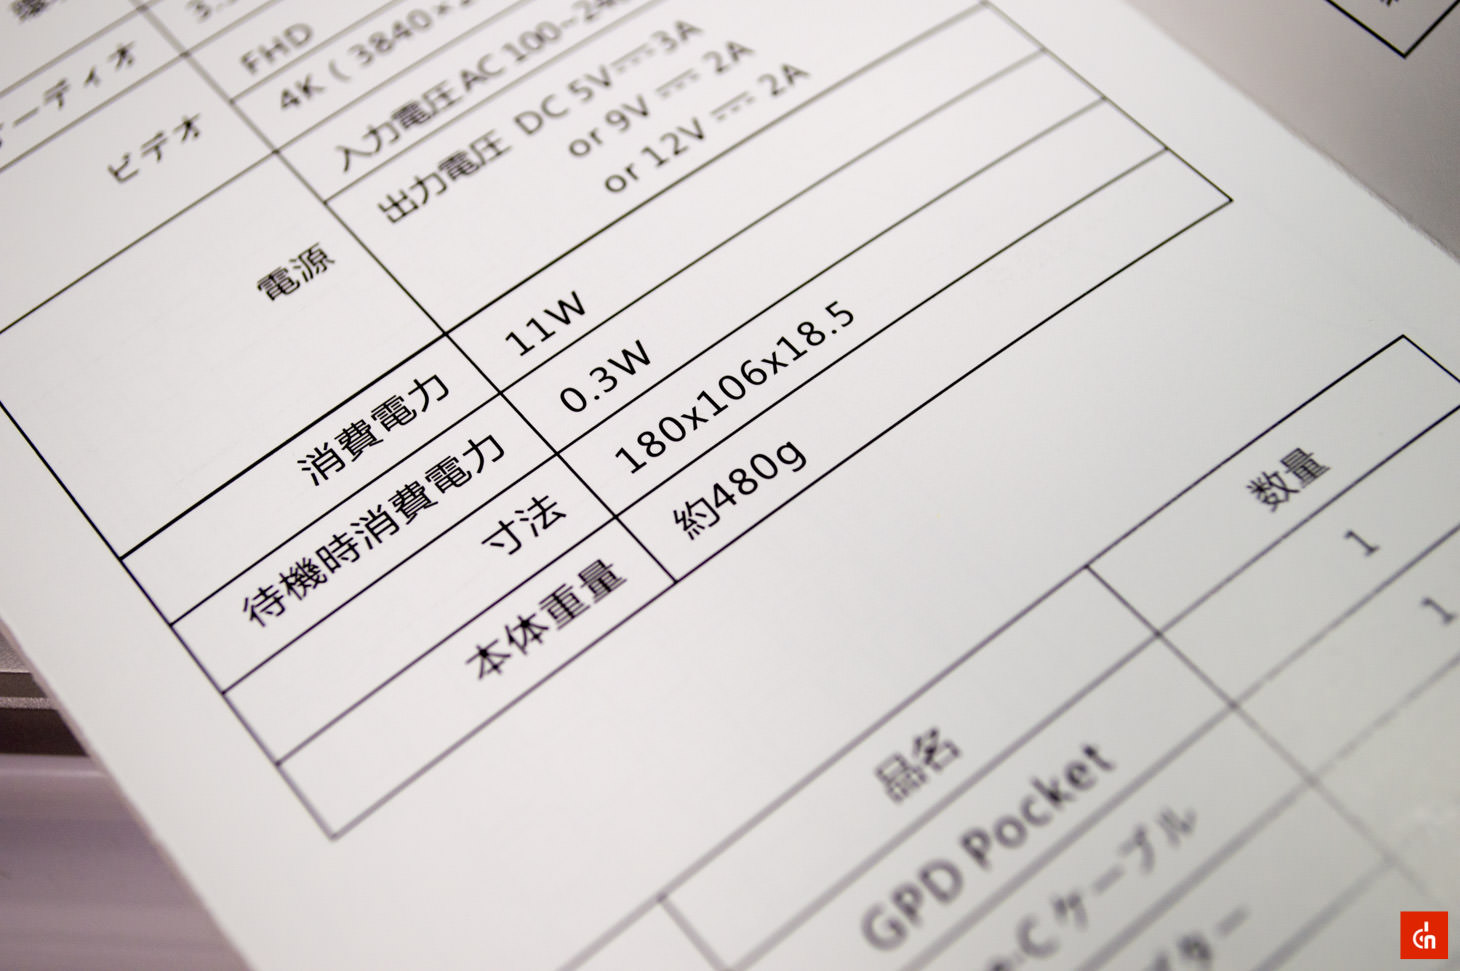 ーディオ
FHD
ビデオ
4K ( 3840×2
入力電圧 AC 100~24
電源
出力電圧 DC 5V⎓3A
or 9V ⎓ 2A
or 12V ⎓ 2A
消費電力 11W
待機時消費電力 0.3W
寸法 180x106x18.5
本体重量 約480g
品名 数量
GPD Pocket 1
-C ケーブル 1